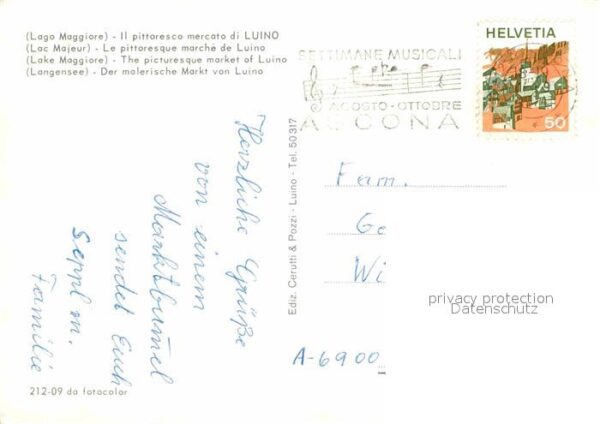 (Lago Maggiore) - Il pittoresco mercato di LUINO
(Lac Majeur) - Le pittoresque marché de Luino
(Lake Maggiore) - The picturesque market of Luino
(Langensee) - Der molerische Markt von Luino
SETTIMANE MUSICALI
AGOSTO-OTTOBRE
ASCONA
HELVETIA
50
Herzliche Grüße
von einem
Marktbumel
sendet Euch
Seppl m.
Familie
Ediz. Cerutti & Pozzi - Luino - Tel. 50317
Fam.
Ge
Wi
privacy protection
Datenschutz
A-6900
212-09 da fotocolor